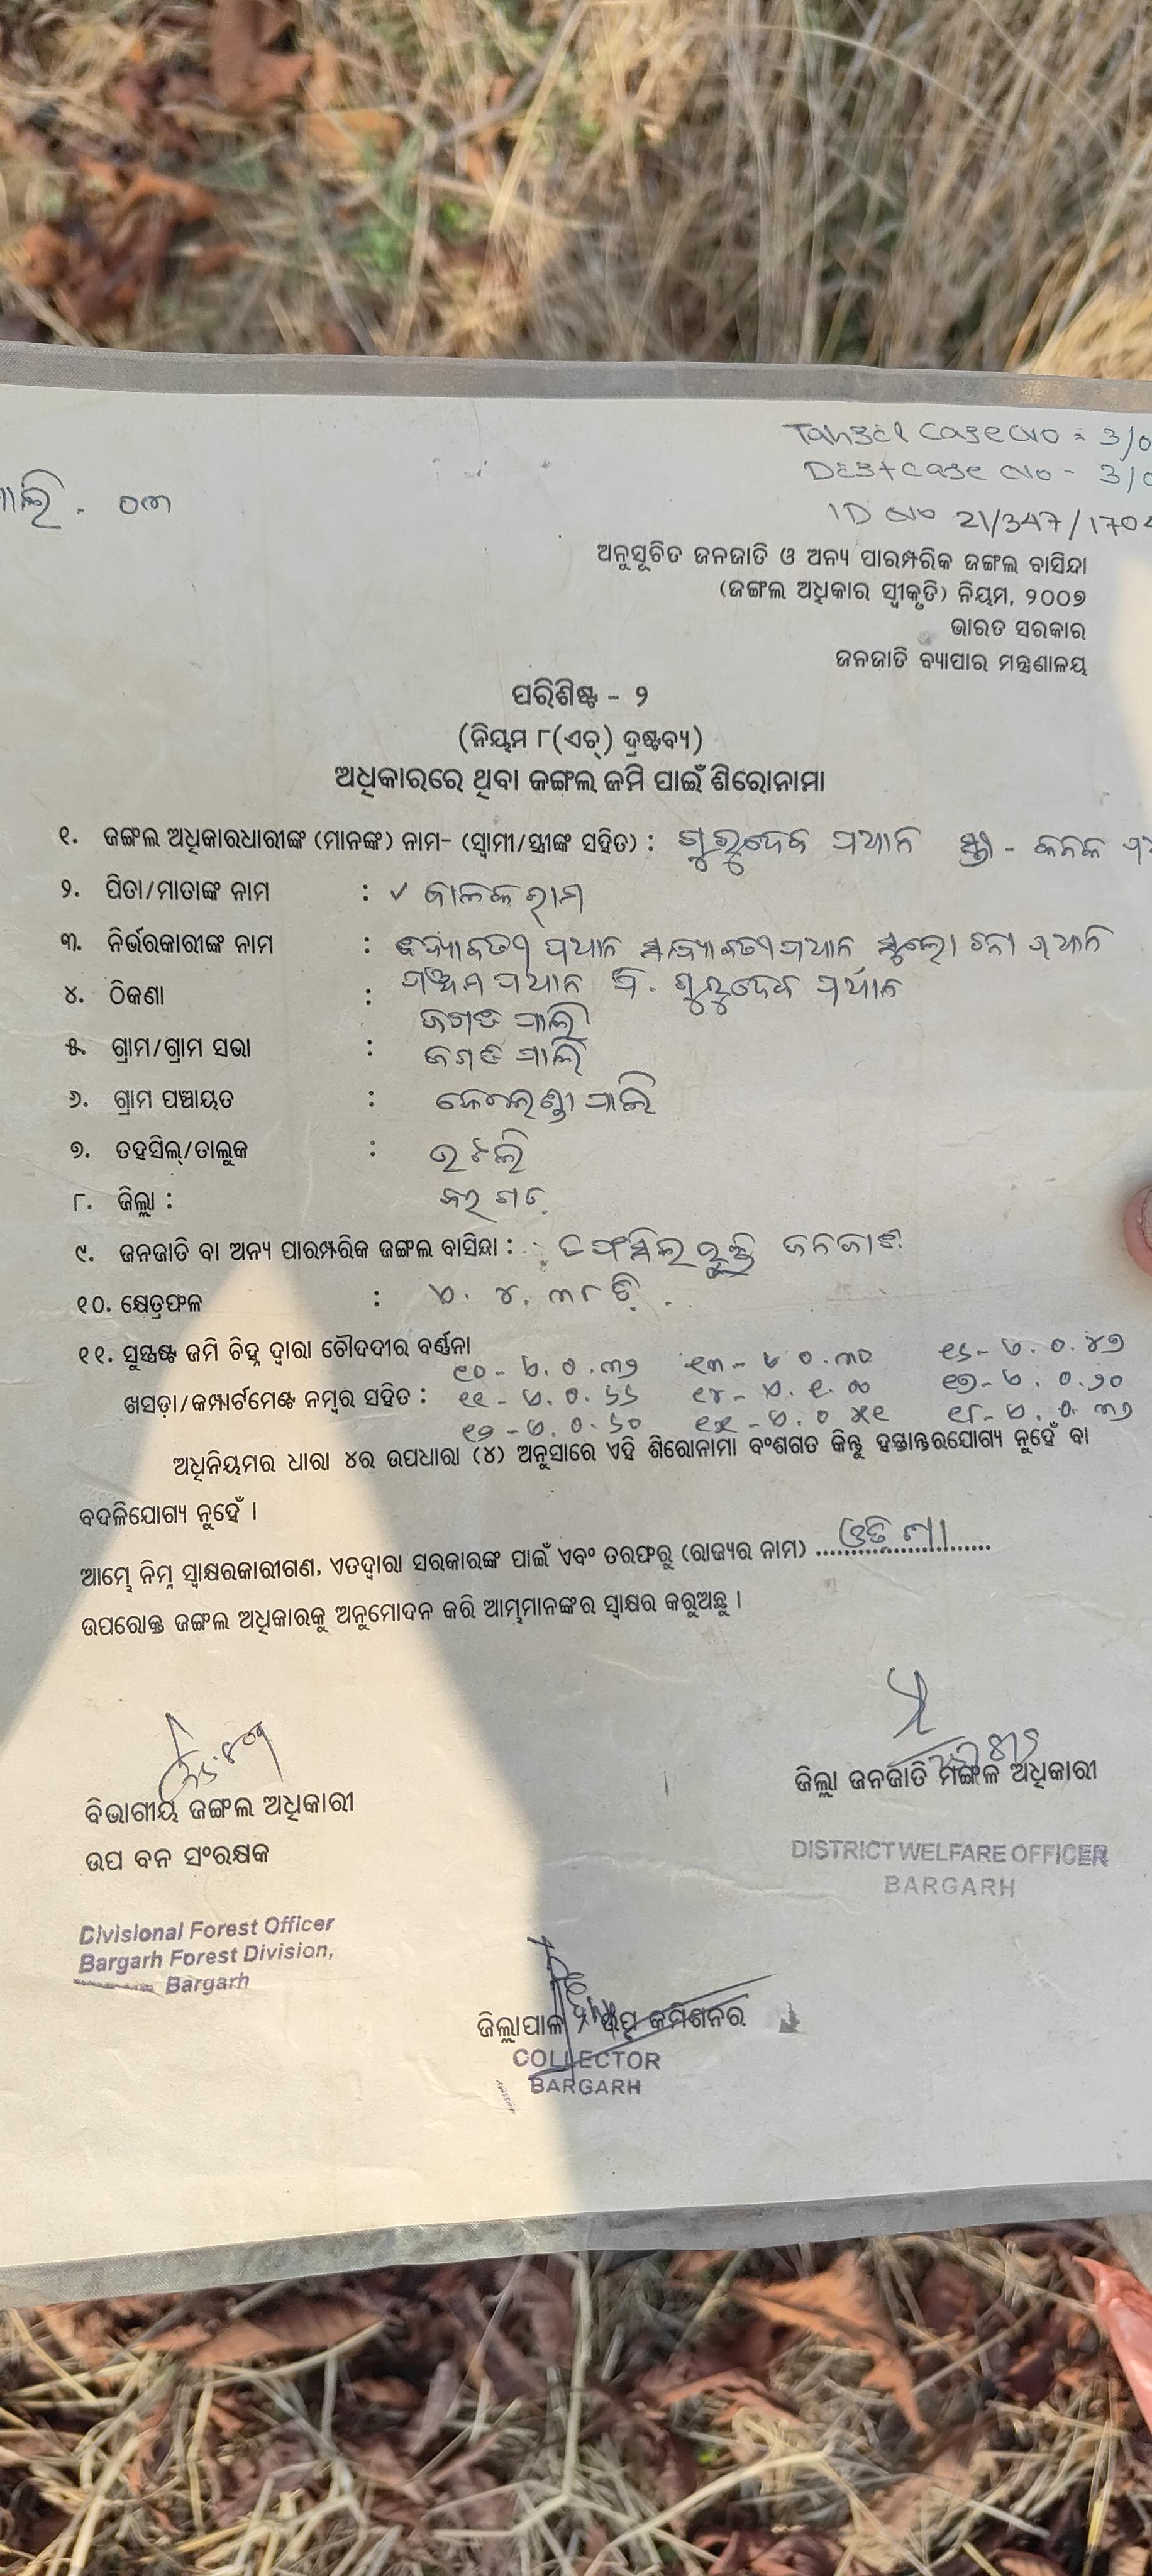 Tahsil Case No = 3/0
Dist case No - 3/0
ପାଲି . ୦୩
ID No 21/347/1704
ଅନୁସୂଚିତ ଜନଜାତି ଓ ଅନ୍ୟ ପାରମ୍ପରିକ ଜଙ୍ଗଲ ବାସିନ୍ଦା
(ଜଙ୍ଗଲ ଅଧିକାର ସ୍ୱୀକୃତି) ନିୟମ, ୨୦୦୭
ଭାରତ ସରକାର
ଜନଜାତି ବ୍ୟାପାର ମନ୍ତ୍ରଣାଳୟ
ପରିଶିଷ୍ଟ - ୨
(ନିୟମ ୮(ଏଚ୍) ଦ୍ରଷ୍ଟବ୍ୟ)
ଅଧିକାରରେ ଥିବା ଜଙ୍ଗଲ ଜମି ପାଇଁ ଶିରୋନାମା
୧. ଜଙ୍ଗଲ ଅଧିକାରଧାରୀଙ୍କ (ମାନଙ୍କ) ନାମ- (ସ୍ୱାମୀ/ସ୍ତ୍ରୀଙ୍କ ସହିତ) : ଗୁରୁଦେବ ପ୍ରଧାନ ସ୍ତ୍ରୀ - କନକ
୨. ପିତା/ମାତାଙ୍କ ନାମ : ✓ ବାଳକରାମ
୩. ନିର୍ଭରକାରୀଙ୍କ ନାମ : ପ୍ରଧାନ ପ୍ରଧାନ ସୁଲୋଚନା ପ୍ରଧାନ
ପଞ୍ଚମ ପ୍ରଧାନ ପି. ଗୁରୁଦେବ ପ୍ରଧାନ
୪. ଠିକଣା : ଜଗତପାଲି
୫. ଗ୍ରାମ/ଗ୍ରାମ ସଭା : ଜଗତପାଲି
୬. ଗ୍ରାମ ପଞ୍ଚାୟତ : କେଲେଣ୍ଡାପାଲି
୭. ତହସିଲ୍/ତାଲୁକ : ଭଟଲି
୮. ଜିଲ୍ଲା : ବରଗଡ଼
୯. ଜନଜାତି ବା ଅନ୍ୟ ପାରମ୍ପରିକ ଜଙ୍ଗଲ ବାସିନ୍ଦା : ତଫସିଲଭୁକ୍ତ ଜନଜାତି
୧୦. କ୍ଷେତ୍ରଫଳ : ଏ. ୪. ୩୮ ଡି.
୧୧. ସୁସ୍ପଷ୍ଟ ଜମି ଚିହ୍ନ ଦ୍ୱାରା ଚୌଦଦୀର ବର୍ଣ୍ଣନା
୧୦ - ଏ. ୦. ୩୨ ୧୩ - ଏ ୦. ୩୦ ୧୬ - ଏ. ୦. ୪୨
ଖସଡ଼ା/କମ୍ପାର୍ଟମେଣ୍ଟ ନମ୍ବର ସହିତ : ୧୧ - ଏ. ୦. ୬୬ ୧୪ - ଏ. ୧. ୦୦ ୧୭ - ଏ. ୦. ୨୦
୧୨ - ଏ. ୦. ୬୦ ୧୫ - ଏ. ୦ ୫୧ ୧୮ - ଏ. ୦. ୩୨
ଅଧିନିୟମର ଧାରା ୪ର ଉପଧାରା (୪) ଅନୁସାରେ ଏହି ଶିରୋନାମା ବଂଶଗତ କିନ୍ତୁ ହସ୍ତାନ୍ତରଯୋଗ୍ୟ ନୁହେଁ ବା
ବଦଳିଯୋଗ୍ୟ ନୁହେଁ ।
ଆମ୍ଭେ ନିମ୍ନ ସ୍ୱାକ୍ଷରକାରୀଗଣ, ଏତଦ୍ୱାରା ସରକାରଙ୍କ ପାଇଁ ଏବଂ ତରଫରୁ (ରାଜ୍ୟର ନାମ) ଓଡିଶା
ଉପରୋକ୍ତ ଜଙ୍ଗଲ ଅଧିକାରକୁ ଅନୁମୋଦନ କରି ଆମ୍ଭମାନଙ୍କର ସ୍ୱାକ୍ଷର କରୁଅଛୁ ।
ଜିଲ୍ଲା ଜନଜାତି ମଙ୍ଗଳ ଅଧିକାରୀ
ବିଭାଗୀୟ ଜଙ୍ଗଲ ଅଧିକାରୀ
ଉପ ବନ ସଂରକ୍ଷକ
DISTRICT WELFARE OFFICER
BARGARH
Divisional Forest Officer
Bargarh Forest Division,
Bargarh
ଜିଲ୍ଲାପାଳ / ଉପ କମିଶନର
COLLECTOR
BARGARH